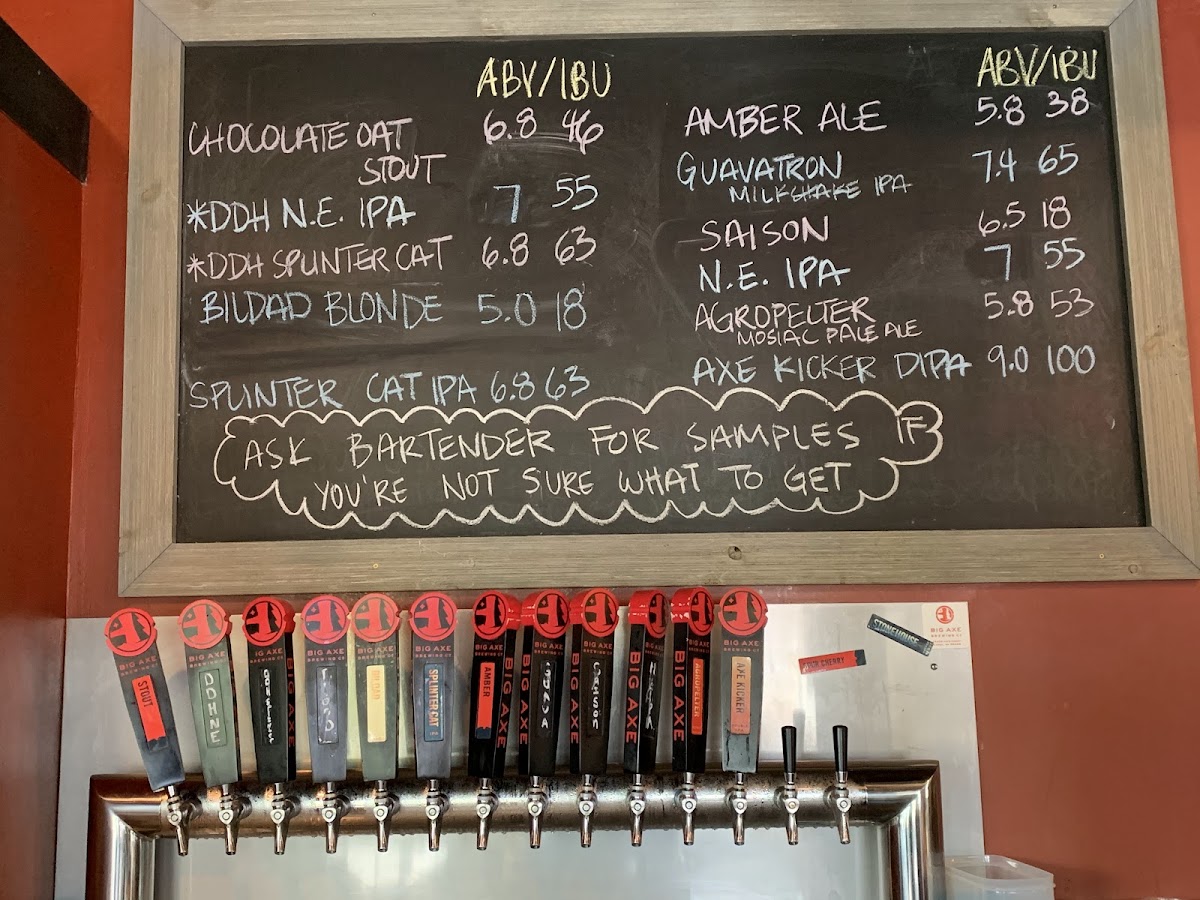 ABV/IBU
CHOCOLATE OAT 6.8 46
STOUT
*DDH N.E. IPA 7 55
*DDH SPLINTER CAT 6.8 63
BILDAD BLONDE 5.0 18
SPLINTER CAT IPA 6.8 63
ABV/IBU
AMBER ALE 5.8 38
GUAVATRON 7.4 65
MILKSHAKE IPA
SAISON 6.5 18
N.E. IPA 7 55
AGROPELTER 5.8 53
MOSIAC PALE ALE
AXE KICKER DIPA 9.0 100
ASK BARTENDER FOR SAMPLES IF
YOU'RE NOT SURE WHAT TO GET
BIG AXE
BREWING CO
STOUT
BIG AXE
BREWING CO
DDHNE
BIG AXE
BREWING CO
BIG AXE
BIG AXE
BREWING CO
BIG AXE
BREWING CO
BILDAD
BIG AXE
BREWING CO
SPLINTER CAT
BIG AXE
AMBER
BIG AXE
BIG AXE
GUAVA
BIG AXE
BIG AXE
BIG AXE
BIG AXE
AGROPELTER
BIG AXE
BREWING CO
AXE KICKER
SOUR CHERRY
STONEHOUSE
BIG AXE
BREWING CO